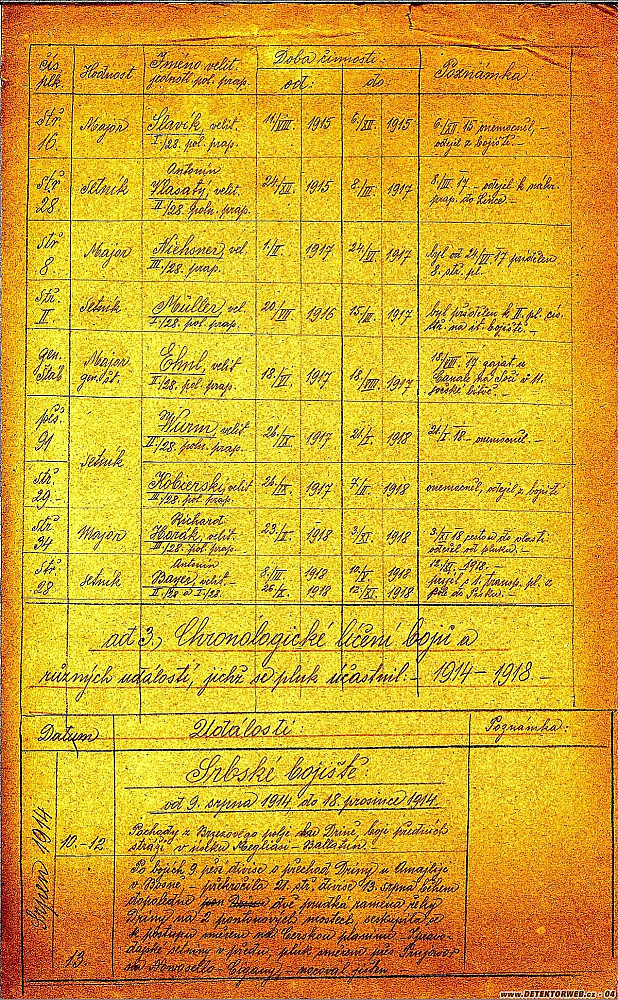 čís. plk.
Hodnost
Jméno velit.
jednotl. pol. prap.
Doba činnosti:
od:
do
Poznámka
Stř. 16.
Major
Slavík, velit.
I/28. pol. prap.
11/VIII. 1915
6/XII. 1915
6/XII 15 onemocněl, –
odejel z bojiště. –
Stř. 28.
Setník
Antonín
Klasatý, velit.
II/28. poln. prap.
24/XI. 1915
8./III. 1917
8./III. 17. – odejel k náhr.
prap. do Lince. –
Stř. 8.
Major
Niehsner, vel.
III./28. prap.
1./II. 1917
24/VI 1917
byl od 24/VI 17 přidělen
8. stř. pl.
Stř. II.
Setník
Müller, vel.
I./28. pol. prap.
20./VII 1916
15./III. 1917
byl přidělen k II. pl. cís.
stř. na it. bojiště. –
gen. štáb
Major
gen. št.
Ehnl, velit.
II/28. pol. prap.
18./VI. 1917
18./VIII. 1917
18/VIII. 17 zajat u
Canale na Soči v 11.
sočské bitvě. –
pěš. 91
setník
Wurm, velit.
II./28. poln. prap.
26./IX 1917
21/I. 1918
21/I 18 – onemocněl. –
Stř. 29. –
Kobierski, velit.
III/28. pol. prap.
26./IX. 1917
7/II. 1918
onemocněl, odejel z bojiště
Stř. 34
Major
Richard
Horák, velit.
III/28. pol. prap. –
23./II. 1918
3/XI. 1918
3/XI 18 cestou do vlasti
odešel od pluku. –
Stř. 28
setník
Antonín
Bayer, velit. –
II/28 a I/28.
8./III. 1918
26/X. 1918
10/V. 1918
12./XI 1918
12./XI. 1918.
přijel s 1. transp. pl. z
pole do Písku. –
ad 3.) Chronologické líčení bojů a
různých událostí, jichž se pluk účastnil. – 1914 – 1918. –
Datum
Události:
Poznámka:
Srpen 1914
Srbské bojiště:
od 9. srpna 1914, do 18. prosince 1914.
10 – 12
Pochody z Brezovego polje ku Drině, boje předních
stráží v úseku Megliasi – Ballatun.
13.
Po bojích 9. pěší divise o přechod Driny u Amajlije
v Bosně, – překročila 21. stř. divise 13. srpna během
dopoledne dvě prudká ramena řeky
Driny na 2 pontonových mostech, seskupila se
k postupu směrem na Cerskou planinu. – Zpravodajné
setniny v předu, pluk směrem přes Prnjavor
na Novoselo – Cigany, – nocoval
www.DETEKTORWEB.cz - 04